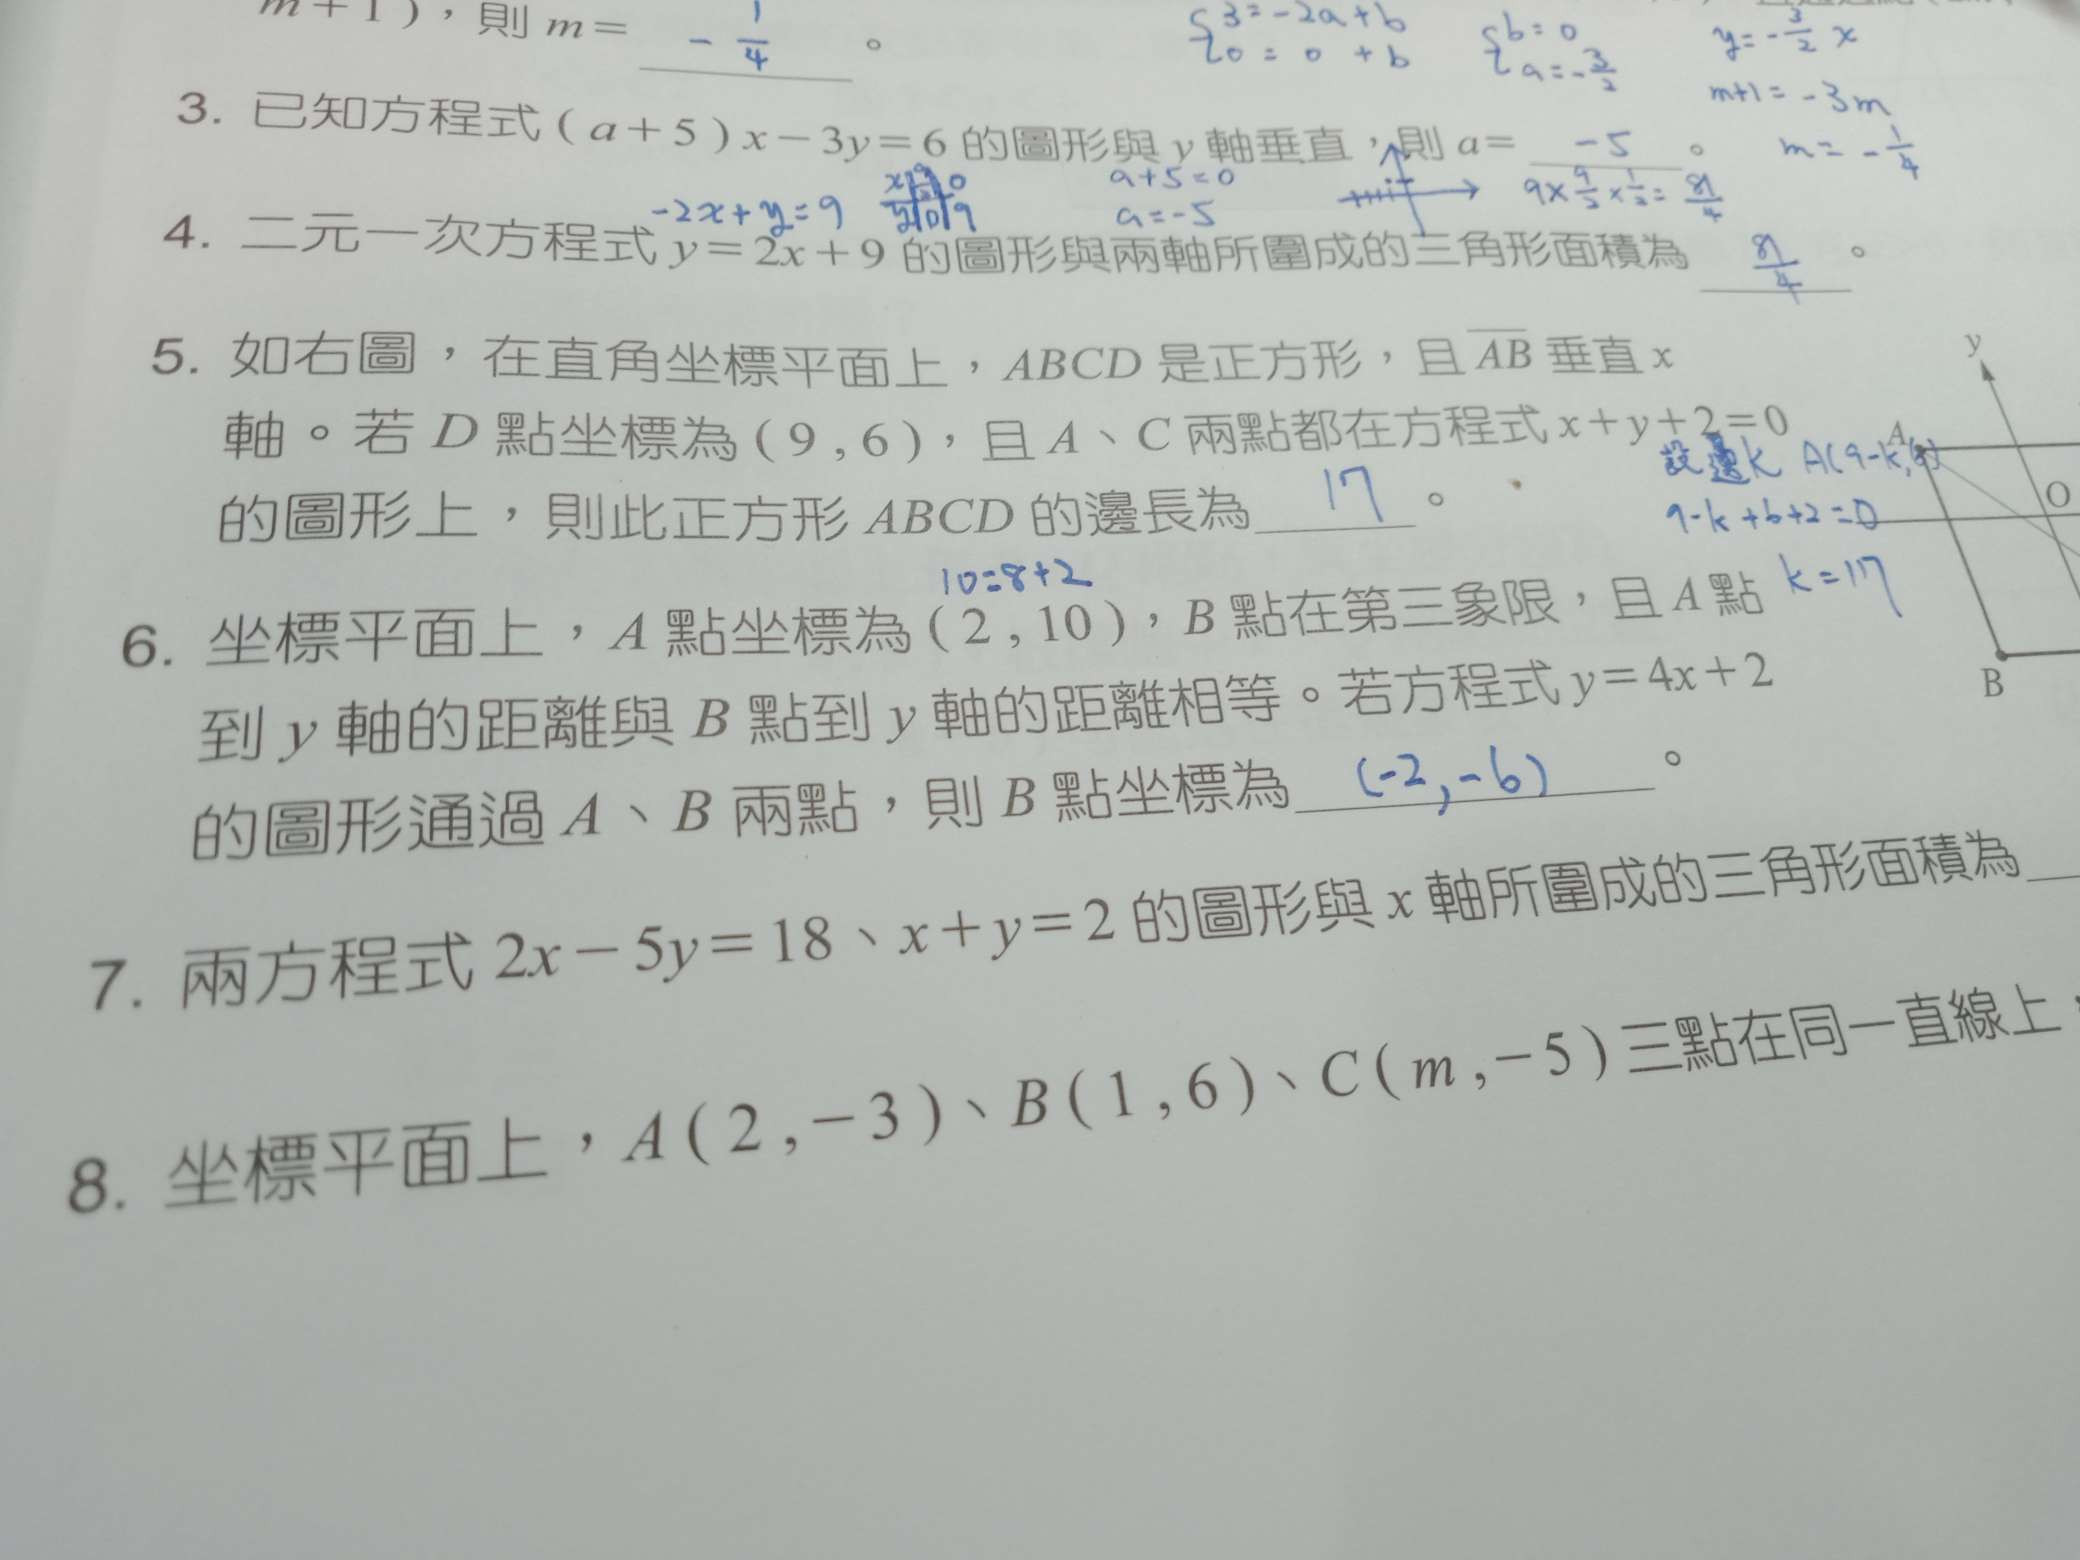 m+1)，則 m= -1/4 。
3=-2a+b
0=0+b
b=0
a=-3/2
y=-3/2 x
m+1=-3m
m=-1/4
3. 已知方程式(a+5)x-3y=6 的圖形與 y 軸垂直，則 a= -5 。
a+5=0
a=-5
9×9/2×1/2=81/4
-2x+y=9
4. 二元一次方程式 y=2x+9 的圖形與兩軸所圍成的三角形面積為 81/4 。
5. 如右圖，在直角坐標平面上，ABCD 是正方形，且 AB 垂直 x
軸。若 D 點坐標為(9,6)，且 A、C 兩點都在方程式 x+y+2=0
的圖形上，則此正方形 ABCD 的邊長為 17 。
設邊k A(9-k,6)
9-k+6+2=0
k=17
y
A
O
B
10=8+2
6. 坐標平面上，A 點坐標為(2,10)，B 點在第三象限，且 A 點
到 y 軸的距離與 B 點到 y 軸的距離相等。若方程式 y=4x+2
的圖形通過 A、B 兩點，則 B 點坐標為 (-2,-6) 。
7. 兩方程式 2x-5y=18、x+y=2 的圖形與 x 軸所圍成的三角形面積為
8. 坐標平面上，A(2,-3)、B(1,6)、C(m,-5)三點在同一直線上，